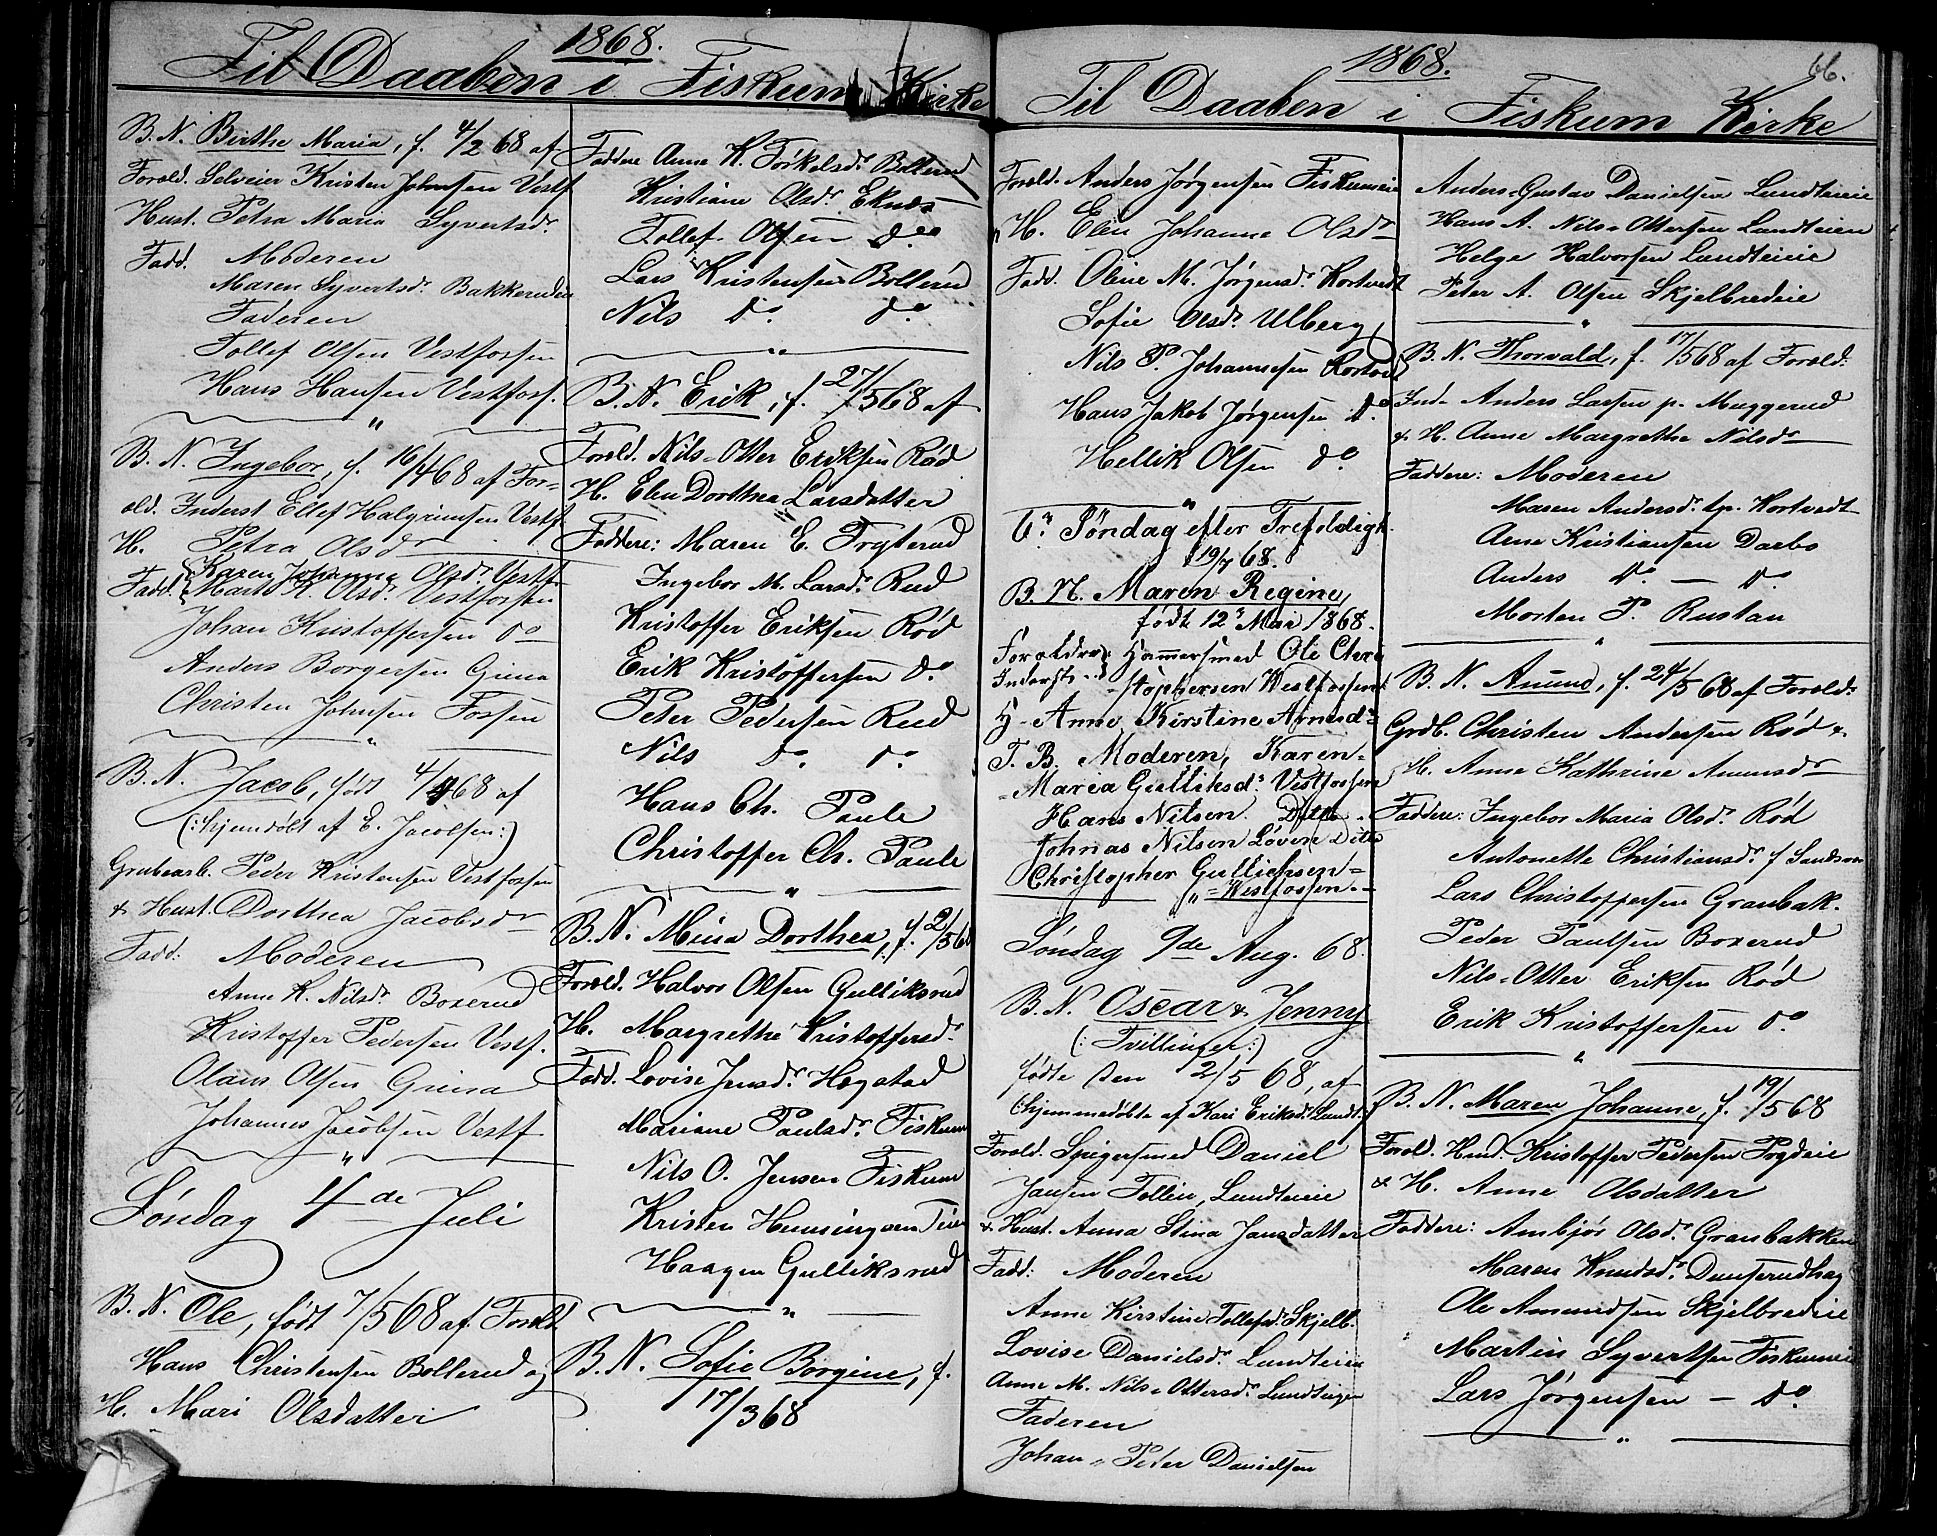 1868.
Til Daaben i Fiskum Kirke
B. N. Birthe Maria, f. 4/2 68 af
Forold. Selveier Kristen Johnsen Vestf
Hust. Petra Maria Syvertsdr.
Fadd. Moderen
Maren Syvertsdr. Bakkerudeie
Faderen
Tollef Olsen Vestfossen
Hans Hansen Vestfoss.
"
B. N. Ingebor, f. 16/4 68 af For-
old. Inderst Ellef Halgrimsen Vestf
H. Petra Olsdr
Fadd. Karen Johanna Olsdr. Vestf.
Mart. K. Olsdr. Vestfossen
Johan Kristoffersen do
Anders Borgersen Guna
Christen Johnsen Fossen
"
B. N. Jacob, født 4/4 68 af
(: hjemdølt af E. Jacobsen :)
Grubearb. Peder Kristensen Vestfossen
& Hust. Dorthea Jacobsdr
Fadd: Moderen
Anne K. Nilsdr Boxerud
Kristoffer Pedersen Vestf.
Olaus Olsen Gruna
Johannes Jacobsen Vestf
"
Søndag 4de Juli
B. N. Ole, født 7/5 68 af Forold
Hans Christensen Bollerud og
H. Mari Olsdatter
Faddere Anne K. Torkelsdr. Bollerud
Kristiane Olsdr. Eknes
Tollef Olsen do
Lars Kristensen Bollerud
Nils do. do.
"
B. N. Erik, f. 27/5 68 af
Forold. Nils-Otter Eriksen Rød
H. Elen Dorthea Larsdatter
Faddere: Maren E. Trytterud
Ingebor M. Larsdr. Rud
Kristoffer Eriksen Rød
Erik Kristoffersen do.
Peter Pedersen Rud
Nils do. do.
Hans Ch. Paule
Christoffer Ch. Paule
"
B. N. Mina Dorthea, f. 2/5 68
Forold. Halvor Olsen Gulliksrud
H. Margrethe Kristoffersdr.
Fadd. Lovise Jensdr. Hogstad
Mariane Paulsdr. Fiskum
Nils O. Jensen Fiskum
Kristen Henningsen Teien
Haagen Gulliksrud
"
B. N. Sofie Borgine, f.
17/3 68
1868.
66.
Til Daaben i Fiskum Kirke
Forold. Anders Jørgensen Fiskumeie
H. Elen Johanne Olsdr
Fadd. Oline M. Jørgensdr. Kortvedt
Sofie Olsdr. Ulberg
Nils P. Johannesen Kortved
Hans Jakob Jørgensen do
Hellik Olsen do.
"
6te Søndag efter Trefoldigh.
19/7 68.
B. N. Maren Regine,
født 12te Mai 1868.
Forældre: Hammersmed Ole Chri
Inderst stophersen Westfossen
H. Anne Kirstine Arnudr
F. B. Moderen, Karen
Maria Gulliksdr. Vestfossen
Hans Nilsen. Ditto.
Johnas Nilsen Løvene Ditto
Christopher Gullichsen
" Westfossen.
Søndag 9de Aug. 68.
B. N. Oscar & Jenny
(: Tvillinger :)
fødte den 2/5 68, af
(hjemmedøbte af Kari Eriksdr. Lundt.)
Forold. Spigersmed Daniel
Jansen Tollin, Lundteieie
& Hust. Anna Stina Jansdatter
Fadd: Moderen
Anne Kirstine Tollefsdr. Skjelb.
Lovise Danielsdr. Lundteien
Anne M. Nils-Ottersdr. Lundteigen
Faderen
Johan-Peter Danielsen
Anders-Gustav Danielsen Lundteieie
Hans A. Nils-Ottersen Lundteien
Helge Halvorsen Lundteieie
Peter A. Olsen Skjelbredeie
"
B. N. Thorvald, f. 17/5 68 af Forold:
Ind. Anders Larsen p. Muggerud
& H. Anne Margrethe Nilsdr
Faddere: Moderen
Maren Andersdr. tp. Kortvedt
Anne Kristiansen Darbo
Anders do. — do
Morten P. Rustan
"
B. N. Anund, f. 24/5 68 af Forold:
Grdb. Christen Andersen Rød &
H. Anne Kathrine Amunsdr
Faddere: Ingebor Maria Olsdr. Rød
Antonette Christiansdr. f Sandsm
Lars Christoffersen Granbak.
Peder Paulsen Boxerud
Nils-Otter Eriksen Rød
Erik Kristoffersen do.
"
B. N. Maren Johanne, f. 19/5 68
Forold. Husd. Kristoffer Pedersen Prydeie
& H. Anne Olsdatter
Faddere: Ambjør Olsdr. Granbakken
Maren Knudsdr. Dunserudhag
Ole Amundsen Skjelbredeie
Martin Syvertsen Fiskumeie
Lars Jørgensen — do.
"